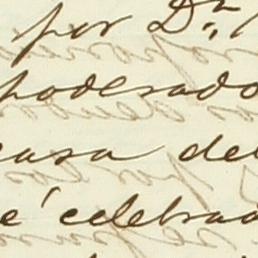 por Dn.
poderado
casa del
é celebrad